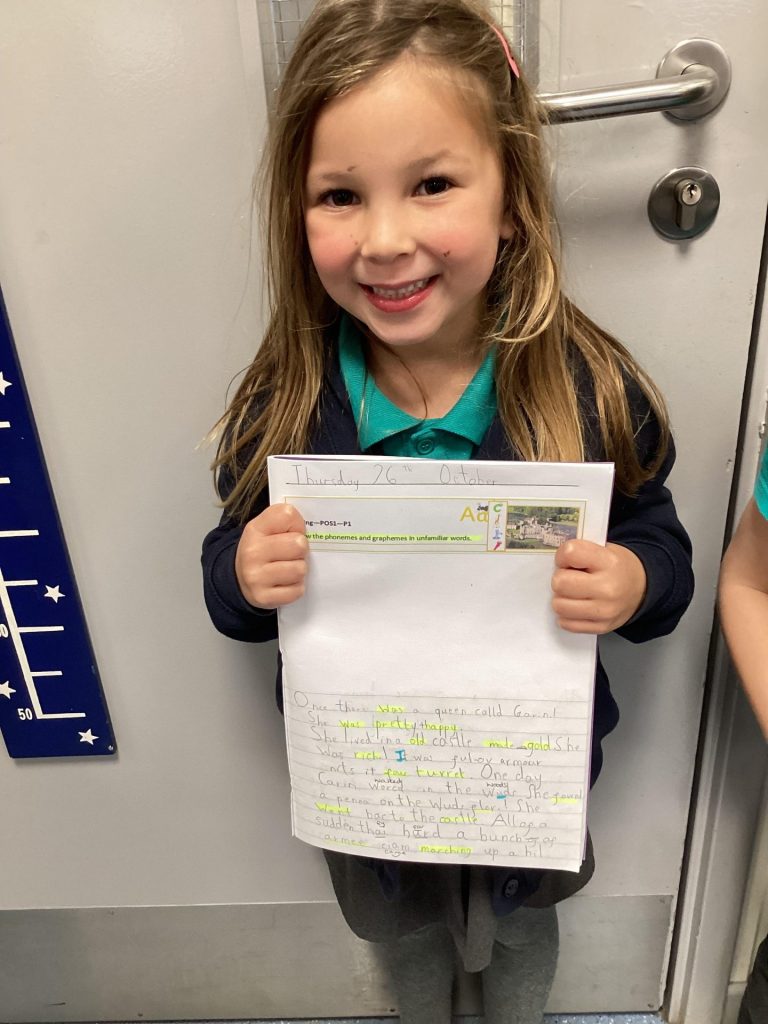 Thursday 26th October
Aa
ng—POS1—P1
w the phonemes and graphemes in unfamiliar words.
Once there was a queen calld Garin!
She was pretty + happy.
She lived in a old castle made gold She
was rich! It was ful ov armour
it four turret One day
Carin walked in the woods She found
a on the wuds flor! She
went bac to the castle. All ov a
sudden thay hard a bunch of
armee cam marching up a hil
50